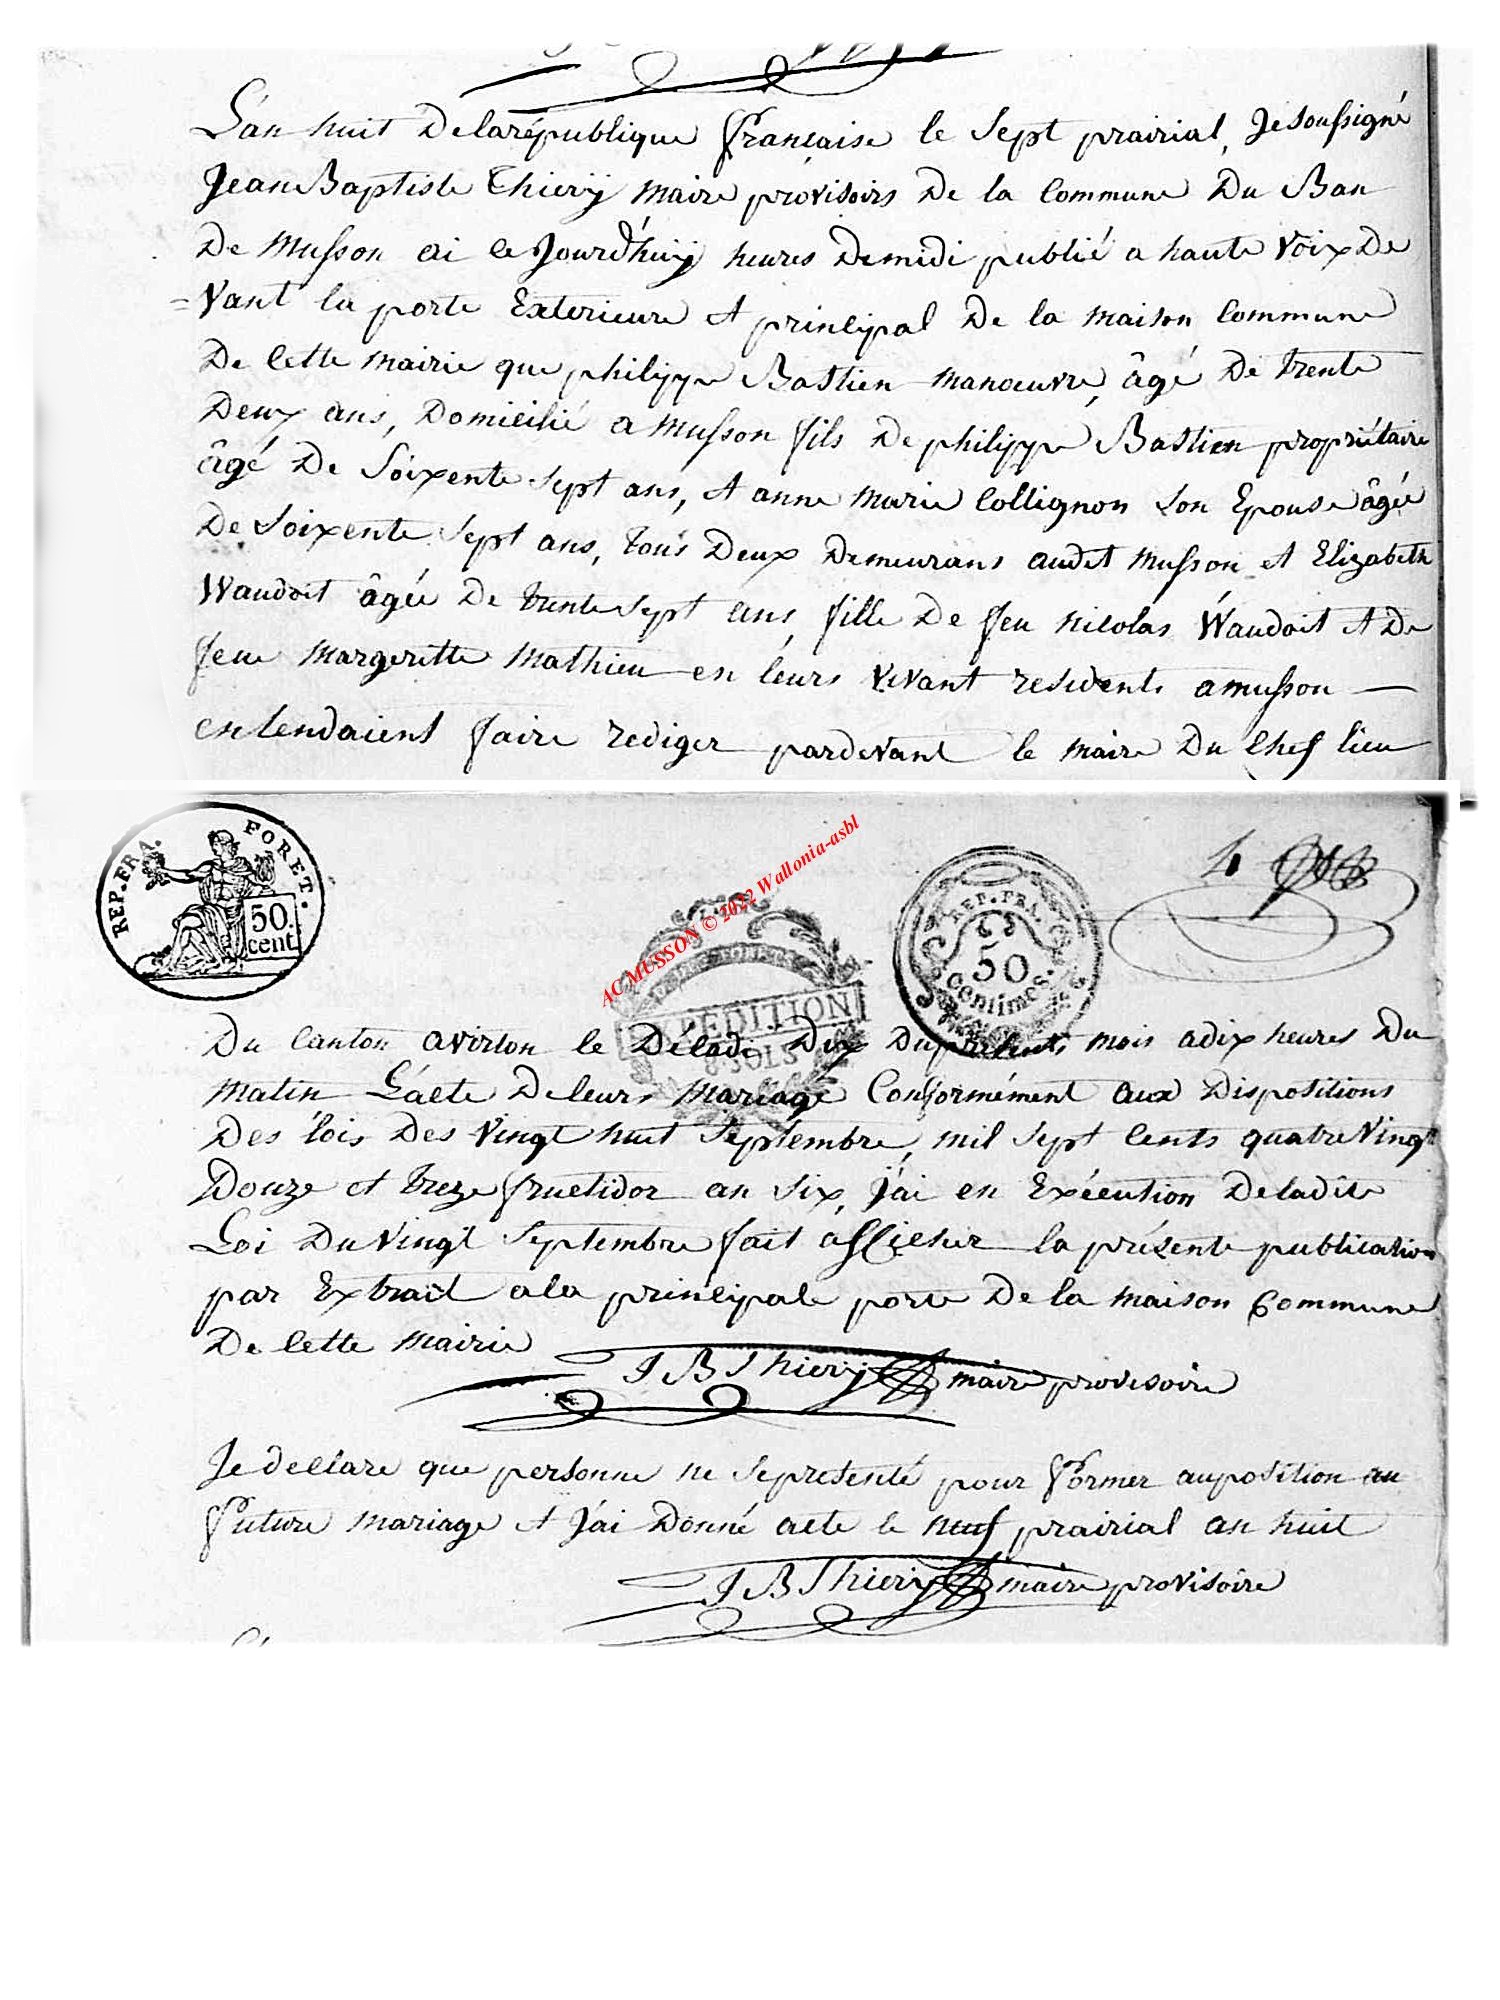 L'an huit De la république française le sept prairial, Je soussigné
Jean Baptiste Thierÿ maire provisoirs De la Commune Du Ban
De Musson ai ce Jourd'huÿ heures De midi publié a haute Voix De
= Vant la porte Exterieure et principal De la maison Commune
De Cette mairie que philippe Bastien manoeuvre, âgé De trente
Deux ans, Domicilié a Musson fils De philippe Bastien propriétaire
âgé De Soixente Sept ans, et anne marie Collignon son Epouse âgée
De Soixente Sept ans, tous Deux Demeurans audit Musson et Elizabeth
Waudoit âgée De trente Sept ans, fille De feu nicolas Waudoit et De
feue Margeritte Mathieu en leurs vivant residents a musson —
entendaient faire rediger pardevant le maire Du Chef lieu
REP. FRA. FORET.
50 cent.
AC MUSSON © 2022 Wallonia-asbl
EXPÉDITION
SOLS
REP. FRA.
50
centimes.
4
Du Canton a virton le Décadi Dix Du présents mois a dix heures Du
matin L'acte De leurs mariage Conformément aux Dispositions
Des lois Des Vingt huit Septembre, mil sept Cents quatre Vingt
Douze et treze fructidor an Six, j'ai en Exécution De ladite
Loi Du Vingt Septembre fait afficher la présente publication
par Extrait a la principale porte De la maison Commune
De Cette mairie
J B Thierÿ maire provisoire
Je declare que personne ne se presenté pour former auposition au
future mariage et j'ai Donné acte le neuf prairial an huit
J B Thierÿ maire provisoire